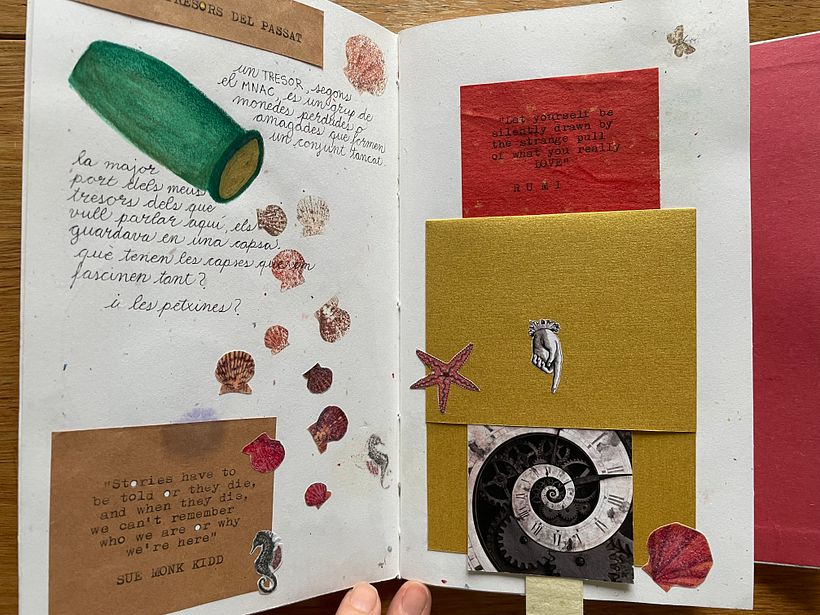 TRESORS DEL PASSAT
un TRESOR, segons
el MNAC, és un grup de
monedes perdudes o
amagades que formen
un conjunt tancat.
la major
part dels meus
tresors dels que
vull parlar aquí, els
guardava en una capsa.
què tenen les capses que em
fascinen tant?
i les petxines?
"Stories have to
be told or they die,
and when they die,
we can't remember
who we are or why
we're here"
SUE MONK KIDD
"Let yourself be
silently drawn by
the strange pull
of what you really
LOVE"
RUMI